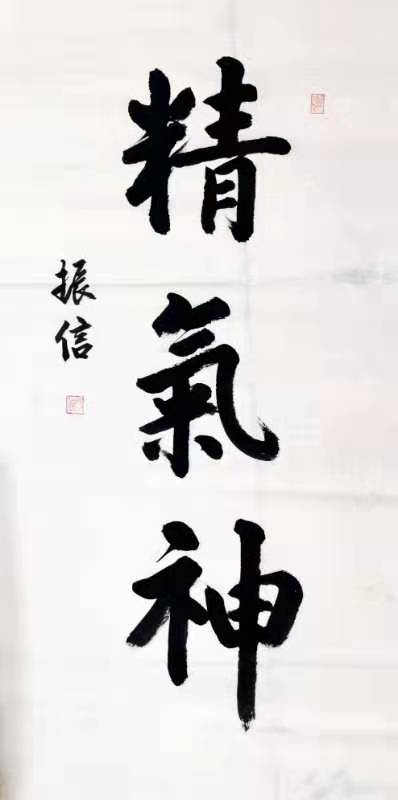 精氣神
振信